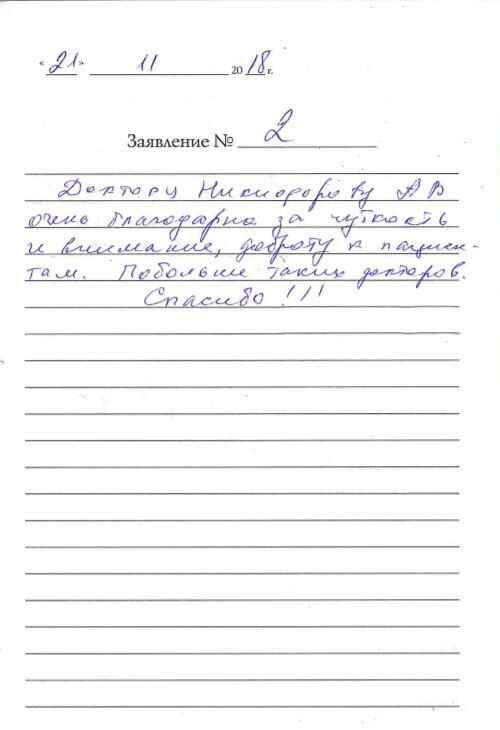 «21» 11 2018 г.
Заявление № 2
Доктору Никиодорову АВ
очень благодарна за чуткость
и внимание, доброту к пациен-
там. Побольше таких докторов.
Спасибо!!!